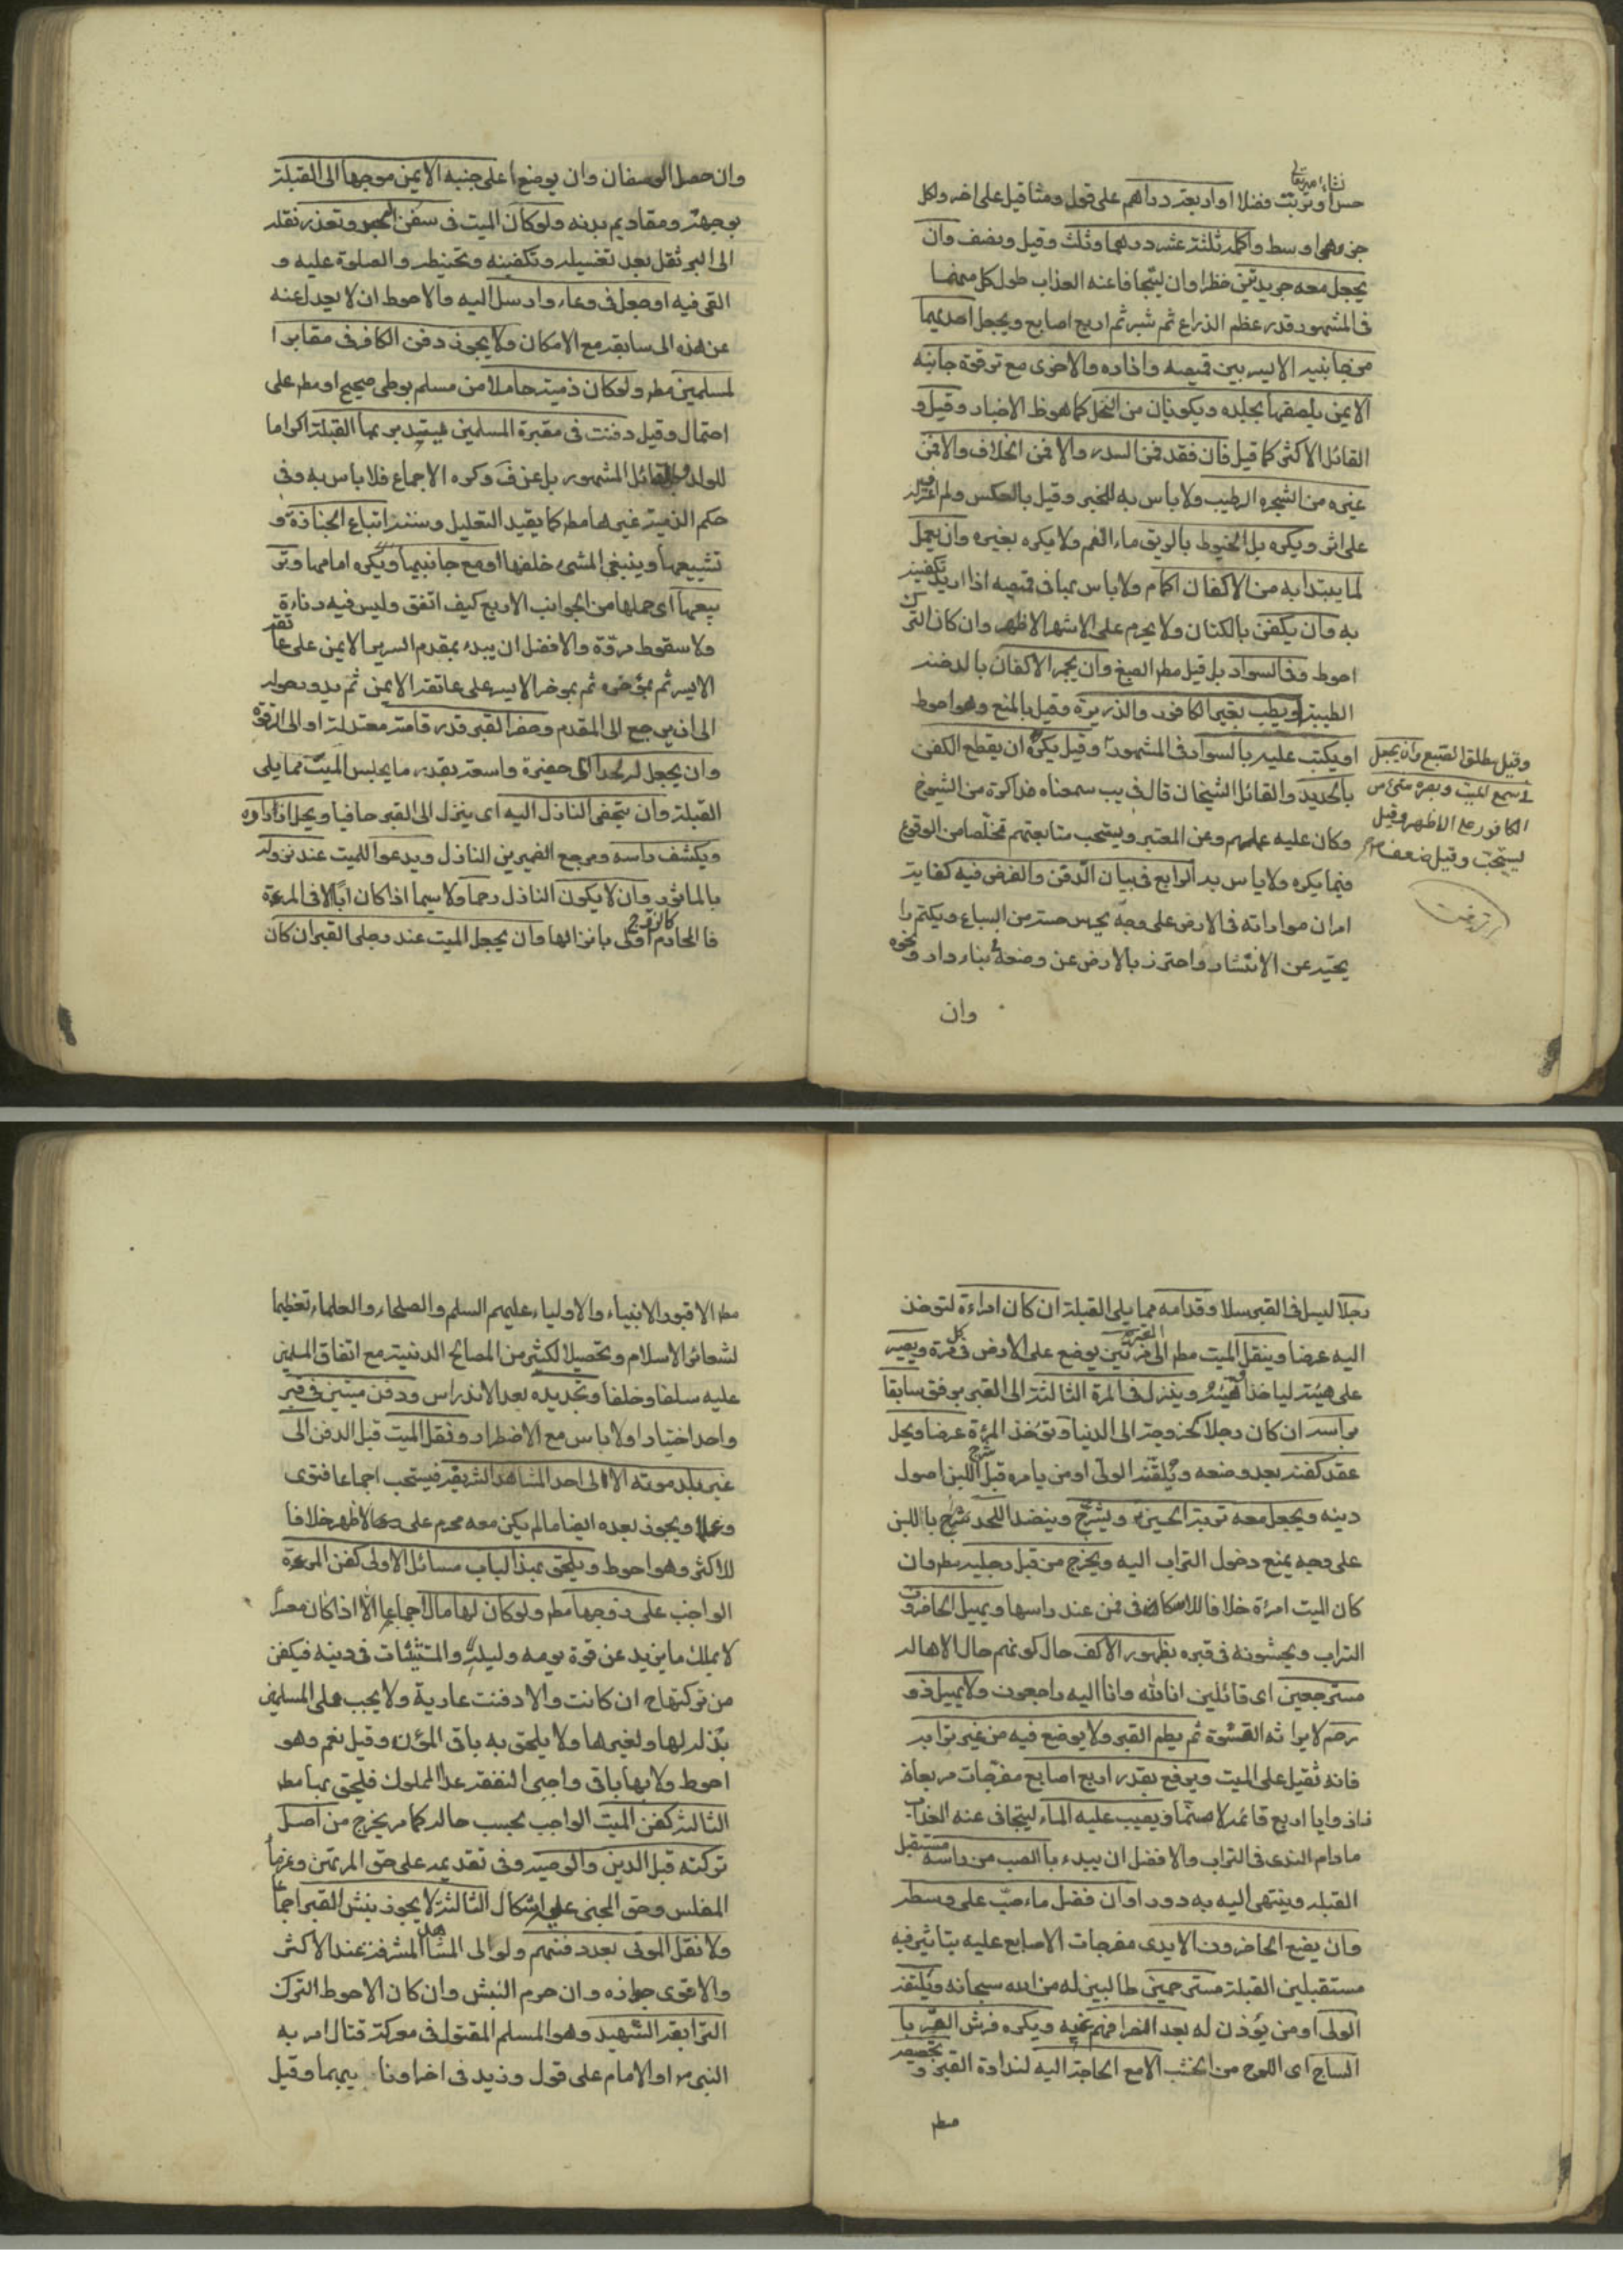 حسن او تربت فضلا او اربعة دراهم على قول ومثاقيل على اخر ولكل
جزء هى اوسط واكمله ثلثة عشر درهما وثلث وقيل ونصف وان
يجعل معه جريدتين خظرا وان ليتجافا عنه العذاب طول كل منهما
فى المشهور قدر عظم الذراع ثم شبر ثم اربع اصابع ويجعل احديهما
من جانبه الايسر بين قميصه وازاره والاخرى مع ترقوة جانبه
الايمن يلصقها بجلده ويكونان من النخل كما هو ظ الاخبار وقيل و
القائل الاكثر كما قيل فان فقد فمن السدر والا فمن الخلاف والا فمن
غيره من الشجر الرطيب ولا باس به للخبر وقيل بالعكس ولم اعثر له
على اثر ويكره بل الخيوط بالريق ماء الفم ولا يكره بغيره وان يعمل
لما يبتدا به من الاكفان اكمام ولا باس بما فى قميصه اذا اريد تكفينه
به وان يكفن بالكتان ولا يحرم على الاشهر الاظهر وان كان الترك
احوط وفى السواد بل قيل مطم الصبغ وان يجمر الاكفان بالدخنه
الطيبة او يطيب بغير الكافور والذريرة وقيل بالمنع وهو احوط
او يكتب عليه بالسواد فى المشهور وقيل يكره ان يقطع الكفن
بالحديد والقائل الشيخان قال فى يب سمعناه مذاكرة من الشيوخ
وكان عليه عملهم وعن المعتبر ويستحب متابعتهم تخلصا من الوقوع
فيما يكره ولا باس به الرابع فى بيان الدفن والفرض فيه كفاية
امران مواراته فى الارض على وجه يحرس جسده من السباع ويكتم را
يحته عن الانتشار واحترز بالارض عن وضعه بناء وارد ونحوه
وان
وقيل مطلق الصبغ وان يجعل
فى سمع الميت وبصره شىء من
الكافور على الاظهر وقيل
يستحب وقيل ضعف
وان حصل الوصفان وان يوضع على جنبه الايمن موجها الى القبلة
بوجهه ومقاديم بدنه ولو كان الميت فى سفن البحر وتعذر نقله
الى البر ثقل بعد تغسيله وتكفينه وتحنيطه والصلوة عليه و
القى فيه او جعل فى وعاء وارسل اليه والاحوط ان لا يعدل عنه
عن هذه الى سابقه مع الامكان ولا يجوز دفن الكافر فى مقابر ا
لمسلمين مطم ولو كان ذمية حاملا من مسلم بوطى صحيح او مطم على
احتمال وقيل دفنت فى مقبرة المسلمين فيستدبر بها القبلة اكراما
للولد والقائل المشهور بل عن ف وكره الاجماع فلا باس به وفى
حكم الذمية غيرها مطم كما يفيد التعليل وسننه اتباع الجنازة و
تشييعها وينبغى المشى خلفها او مع جانبيها ويكره امامها وتر
بيعها اى حملها من الجوانب الاربع كيف اتفق وليس فيه دنائة
ولا سقوط مروة والافضل ان يبدء بمقدم السرير الايمن على عاتقه
الايسر ثم بمؤخره ثم بموخر الايسر على عاتقه الايمن ثم يدور حوله
الى ان يرجع الى المقدم وحفر القبر قدر قامة معتدلة او الى الترقوة
وان يجعل له لحدا اى حفيرة واسعة بقدر ما يجلس الميت مما يلى
القبلة وان يتحفى النازل اليه اى ينزل الى القبر حافيا ويحل ازراره
ويكشف راسه ومرجع الضميرين النازل ويدعوا للميت عند نزوله
بالماثور وان لا يكون النازل رحما ولا سيما اذا كان ابا الا فى المرءة
فالمحارم اولى بانزالها وان يجعل الميت عند رجلى القبر ان كان
رجلا ليسل فى القبر سلا وقدامه مما يلى القبلة ان كان امراءة لتوخذ
اليه عرضا وينقل الميت مطم الى القبر مرتين يوضع على الارض فى كل مرة ويصبر
على هنيئة لياخذ اهبته وينزل فى المرة الثالثة الى القبر برفق سابقا
براسه ان كان رجلا كخروجه الى الدنيا وتؤخذ المرءة عرضا ويحل
عقد كفنه بعد وضعه ويلقنه الولى او من يامره قبل شرج اللبن اصول
دينه ويجعل معه تربة الحسين ويشرج وينضد اللحد شرج باللبن
على وجه يمنع دخول التراب اليه ويخرج من قبل رجليه مطم وان
كان الميت امرئة خلافا للاسكافى فمن عند راسها ويهيل الحاضرون
التراب ويحثونه فى قبره بظهور الاكف حال كونهم حال الاهاله
مسترجعين اى قائلين انا لله وانا اليه راجعون ولا يهيل ذو
رحم لايراثه القسوة ثم يطم القبر ولا يوضع فيه من غير ترابه
فانه ثقيل على الميت ويرفع بقدر اربع اصابع مفرجات مربعا ذ
ا زوايا اربع قائمه لا مسنما ويصب عليه الماء ليتجافى عنه العذاب
ما دام الندى فى التراب والافضل ان يبدء بالصب من راسه مستقبل
القبله وينتهى اليه به دورا وان فضل ماء صب على وسطه
وان يضع الحاضرون الايدى مفرجات الاصابع عليه بتاثير فيه
مستقبلين القبلة مسترحمين طالبين له من الله سبحانه ويلقنه
الولى او من يؤذن له بعد انصرافهم عنه ويكره فرش القبر با
لساج اى اللوح من الخشب الا مع الحاجة اليه لنداوة القبر وتجصيصه
مطم
مطم الا قبور الانبياء والاولياء عليهم السلم والصلحاء والعلماء تعظيما
لشعائر الاسلام وتحصيلا لكثير من المصالح الدنيية مع اتفاق المسلمين
عليه سلفا وخلفا وتجديده بعد الاندراس ودفن ميتين فى قبر
واحد اختيارا ولا باس مع الاضطرار ونقل الميت قبل الدفن الى
غير بلد موته الا الى احد المشاهد الشريفة فيستحب اجماعا فتوى
وعملا ويجوز بعده ايضا ما لم يكن معه محرم على الاظهر خلافا
للاكثر وهو احوط ويلحق بهذا الباب مسائل الاولى كفن المرءة
الواجب على زوجها مطم ولو كان لها مال اجماعا الا اذا كان معسرا
لا يملك ما يزيد عن قوة يومه وليلة والمستثنيات فى دينه فيكفن
من تركتها ان كانت والا دفنت عارية ولا يجب على المسلمين
بذله لها ولغيرها ولا يلحق به باقى المؤن وقيل نعم وهو
احوط ولا بها باقى واجبى النفقه عدا المملوك فيلحق بها مطم
الثالثة كفن الميت الواجب بحسب حاله كما مر يخرج من اصل
تركته قبل الدين والوصية وفى تقديمه على حق المرتهن وغرماء
المفلس وحق المجنى عليه اشكال الثالثة لا يجوز نبش القبر اجماعا
ولا نقل الموتى بعد دفنهم ولو الى المشاهد المشرفة عند الاكثر
والاقوى جوازه وان حرم النبش وان كان الاحوط الترك
الرابعة الشهيد وهو المسلم المقتول فى معركة قتال امر به
النبى او الامام على قول وزيد فى اخر او نايبهما وقيل